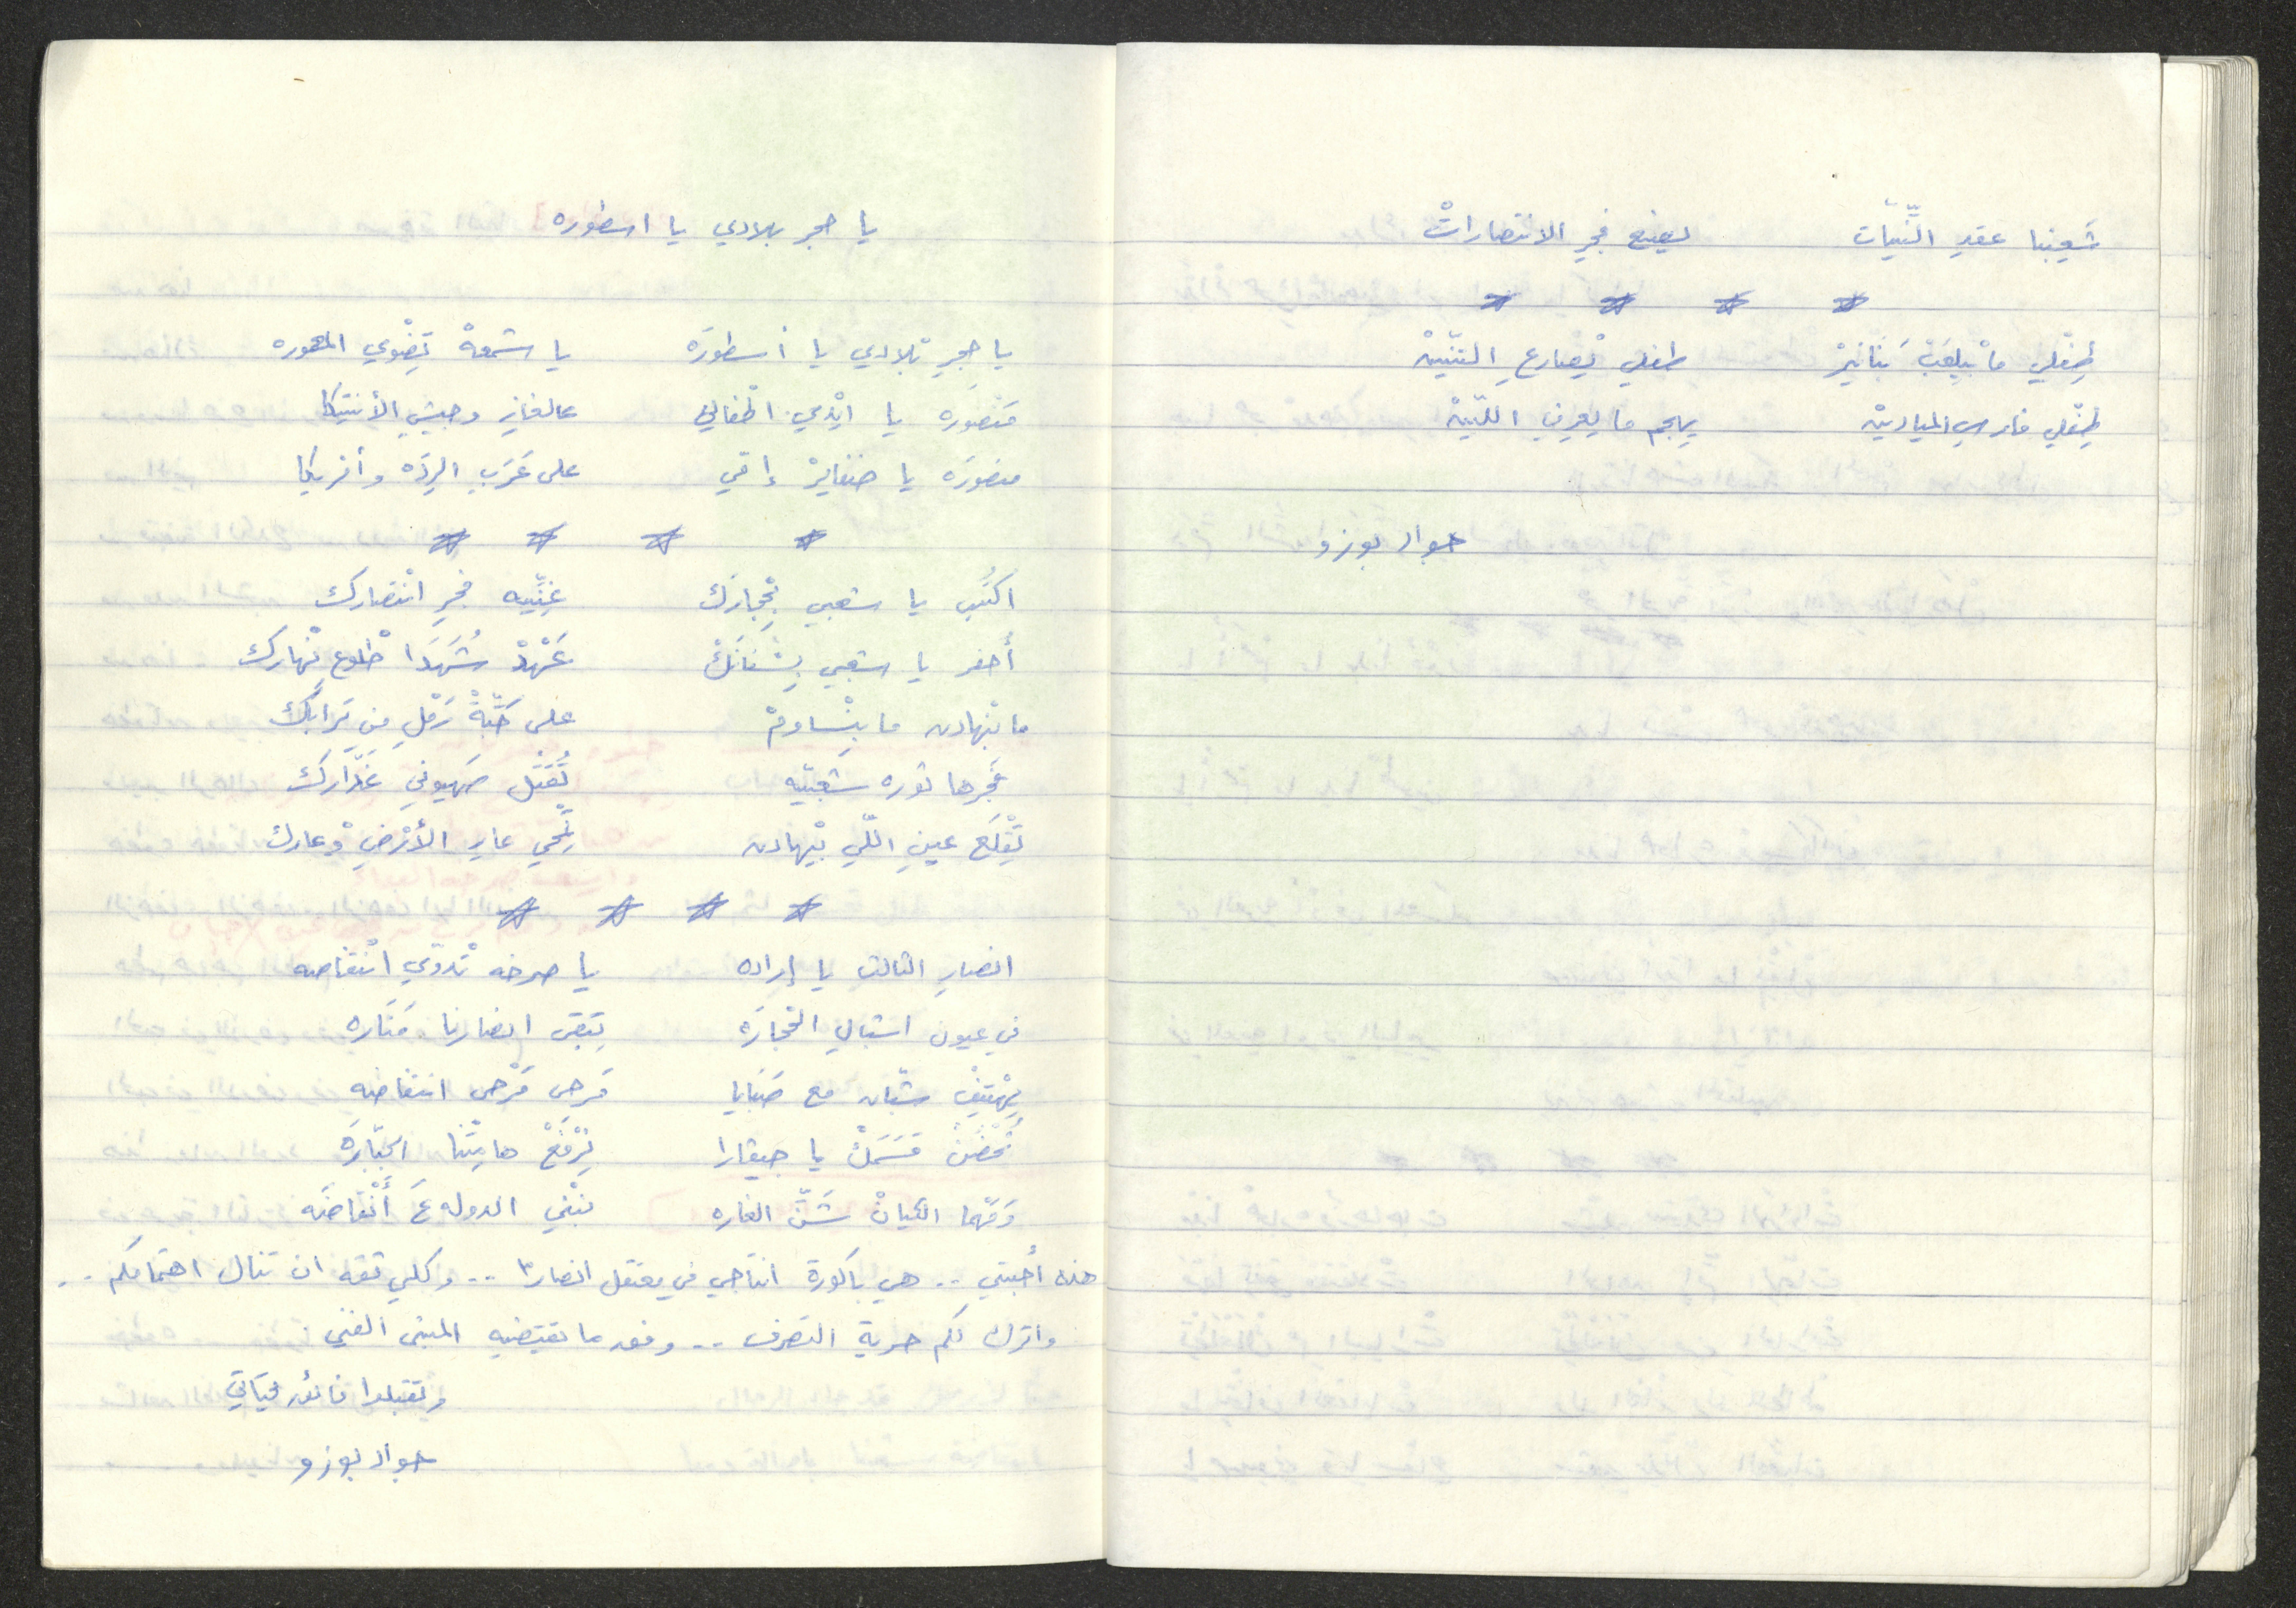 شَعِبنا عقدِ النّيّات يصنع فجرِ الانتصاراتْ
طِفلي ما بيِلعَبْ بَنانيرْ طفلي يْصارعِ التنّينْ
طِفلي فارسِ الميادينْ يِهجم ما يِعرِفِ اللّينْ
جواد بوزو
يا حجر بلادي يا اسطوره
يا حجرِ بْلادي يا أسطورَه يا شمعهْ تِضْوي المعموره
مَنصوره يا ايْدي اطْفالي عالغازِ وجيشِ الأنتيكا
منصورَه يا ضفايرْ إمّي على عَرَبِ الرِدّه وأمريكا
اكتُبِ يا شعبي بِحْجارَك غِنّيه فجرِ انْتصارك
أحفر يا شعبي بِسْنانَكْ عَهْدْ شُهَدَا طْلوع نْهارك
ما نْهادن ما بِنْساومْ على حَبّةْ رَمْلِ مِن تْرابَك
فَجّرها ثوره شَعبيّه تُقتُل صَهيوني غَدّارَك
تِقْلَع عينِ اللّي بيْهادن تِمْحي عارِ الأرْضِ وْعارك
انصارِ الثالثِ يا إراده يا صرخه تْدوّي انْتفاضه
في عيون اشبالي الحْجارَه تِبقى انصارنا مَنَاره
يِهْتِفْ شبّان مع صَبَايا مَرحى مَرْحى انتفاضه
نُحْضُنْ قَسَمَكْ يا جيفارا نِرْفَعْ هامِتْنا الجبّارَه
ومَهما الكيانْ شَنّ الغاره نبْني الدوله عَ أنْقاضَه
هذه أحبتي .. هي باكورة انتاجي في معتقل انصار٣ .. وكلي ثقه ان تنال اهتمامكم ..
واترك لكم حرية التصرف .. وفق ما يقتضيه المبنى الفني
وتقبلوا فائق تحياتي
جواد بوزو